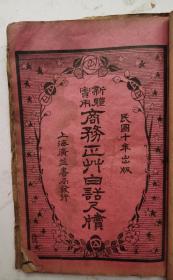 民國十年出版
新體
實用
商務正艸白話尺牘
上海廣益書局發行